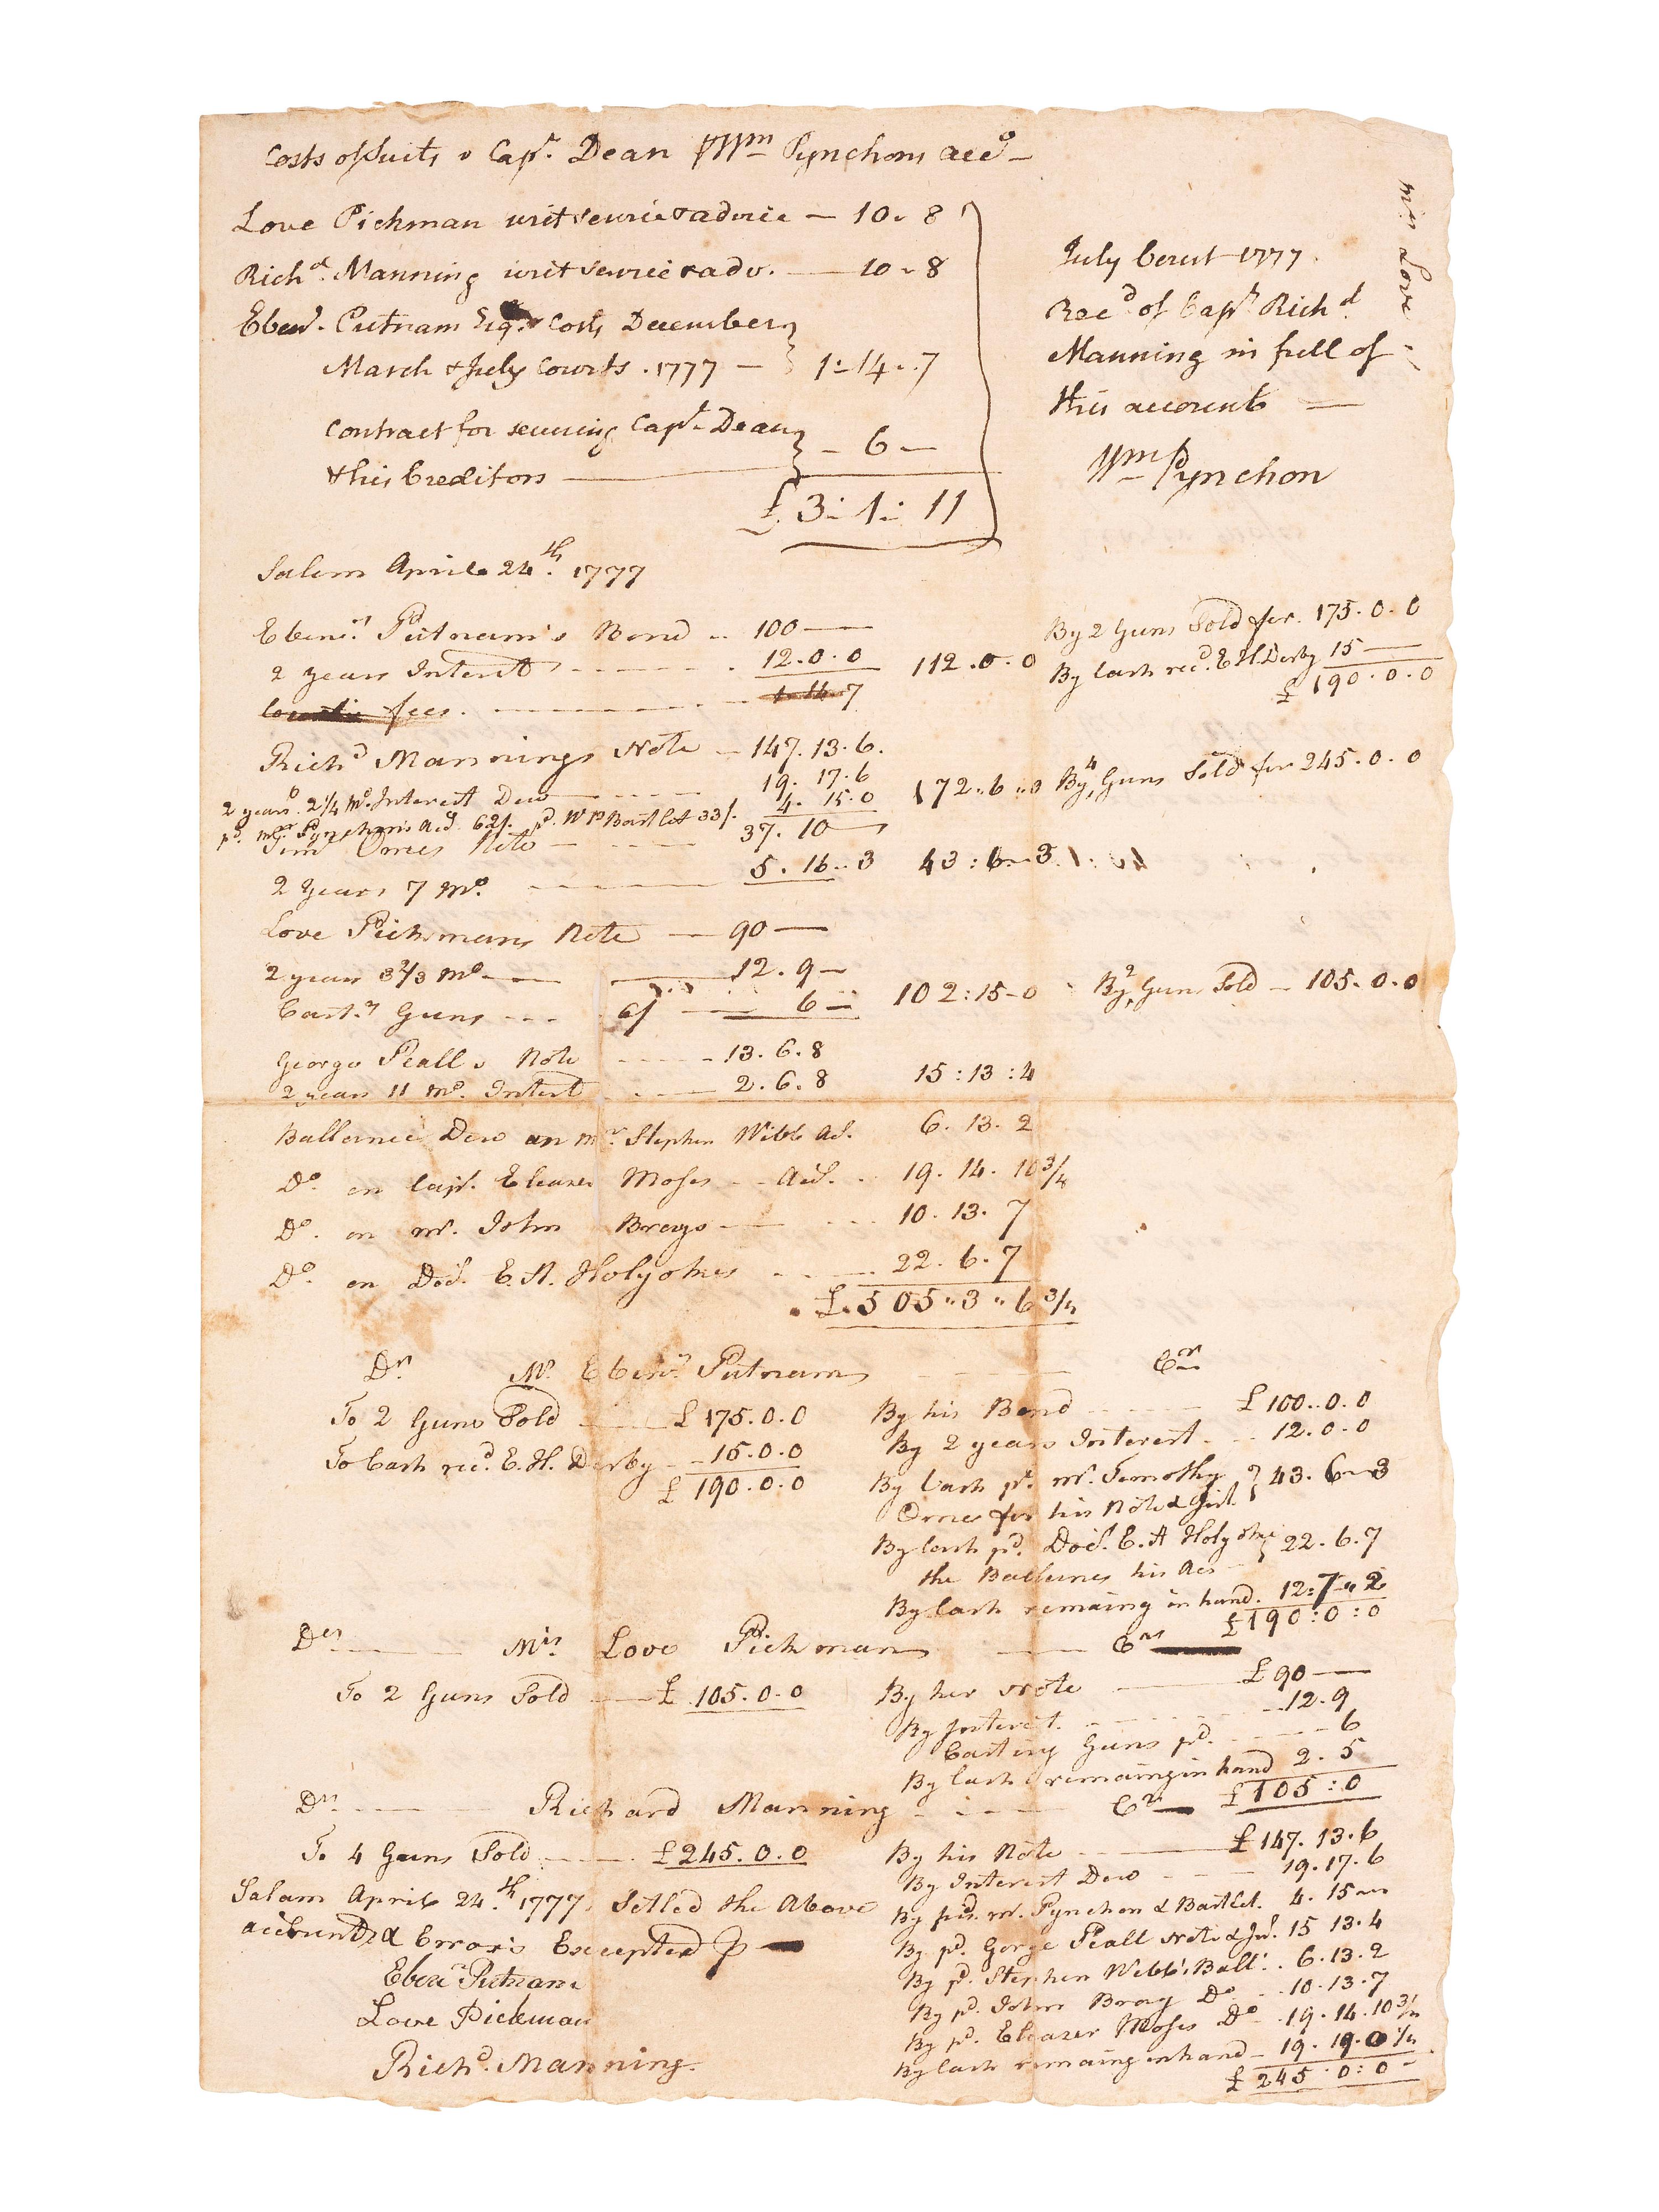 Costs of suits v Capt. Dean pr Wm Pynchons acco
Love Pickman writ service & advice — 10 „ 8
Richd. Manning writ service & adv. — 10 „ 8
Ebenr. Putnam Esqr. Costs December
March & July Courts . 1777 — 1 : 14 „ 7
contract for securing Capt. Dean
& his Creditors — 6 —
£ 3 : 1 : 11
July Court 1777.
Recd of Capt Richd
Manning in full of
this account —
Wm Pynchon
Mrs Love
Salem April 24th. 1777
Ebenr. Putnam's Bond .. 100 —
2 years Interest 12 . 0 . 0 112 . 0 . 0
fees . 1 . 14 . 7
By 2 Guns Sold for . 175 . 0 . 0
By Cash recd. E H Derby 15 —
£ 190 . 0 . 0
Richd Mannings Note — 147 . 13 . 6 .
2 years. 2 1/4 Mo. Interest Due 19 . 17 . 6
pd. Mr. Pynchon's Acct. 62/. pd. Wm Bartlet 33/. 4 . 15 . 0 172 „ 6 „ 0
By 4 Guns Sold for 245 . 0 . 0
Timo Ornes Note 37 . 10 —
2 years 7 Mo. 5 . 16 „ 3 43 : 6 „ 3
Love Pickmans Note — 90 —
2 years 3 2/3 Mo — 12 . 9 —
Cartg Guns 6/ 6 — 102 : 15 - 0
By 2 Guns Sold — 105 . 0 . 0
George Pealls Note 13 . 6 . 8
2 years 11 Mo. Interst 2 . 6 . 8 15 : 13 : 4
Ballance Due on Mr. Stephen Webb Act. 6 . 13 . 2
Do. on Capt. Eleazer Moses Act. . 19 . 14 . 10 3/4
Do. on Mr. John Brays 10 . 13 . 7
Do. on Doct. E. A. Holyokes 22 . 6 . 7
£ . 505 „ 3 „ 6 3/4
Dr Mr. Ebenr. Putnam Cr
To 2 Guns Sold £ 175 . 0 . 0
To Cash recd. E. H. Derby 15 . 0 . 0
£ 190 . 0 . 0
By his Bond £ 100 . 0 . 0
By 2 years Interest 12 . 0 . 0
By Cash pd. Mr. Timothy
Ornes for his Note & Int. 43 . 6 „ 3
By Cash pd. Doct. E. A Holyoke
the Ballance his Act 22 . 6 . 7
By Cash remaing in hand . 12 : 7 „ 2
£ 190 : 0 : 0
Dr Mrs. Love Pickman Cr
To 2 Guns Sold £ 105 . 0 . 0
By her Note £ 90 —
By Interest 12 . 9
Carting Guns pd. 6
By Cash remaing in hand 2 . 5
£ 105 : 0
Dr Richard Manning Cr
To 4 Guns Sold £ 245 . 0 . 0
By his Note £ 147 . 13 . 6
By Interest Due 19 . 17 . 6
By pd. Mr. Pynchon & Bartlet . 4 . 15 „
By pd. Gorge Peall Note & Int. 15 13 . 4
By pd. Stephen Webb's Ball. . 6 . 13 . 2
By pd. John Bray Do 10 . 13 . 7
By pd. Eleazer Moses Do . 19 . 14 . 10 3/4
By Cash remaing in hand — 19 . 19 . 0 1/4
£ 245 : 0 : 0 -
Salam April 24th. 1777 Setled the Above
accounts & Errors Excepted p
Ebenr Putnam
Love Pickman
Richd. Manning.